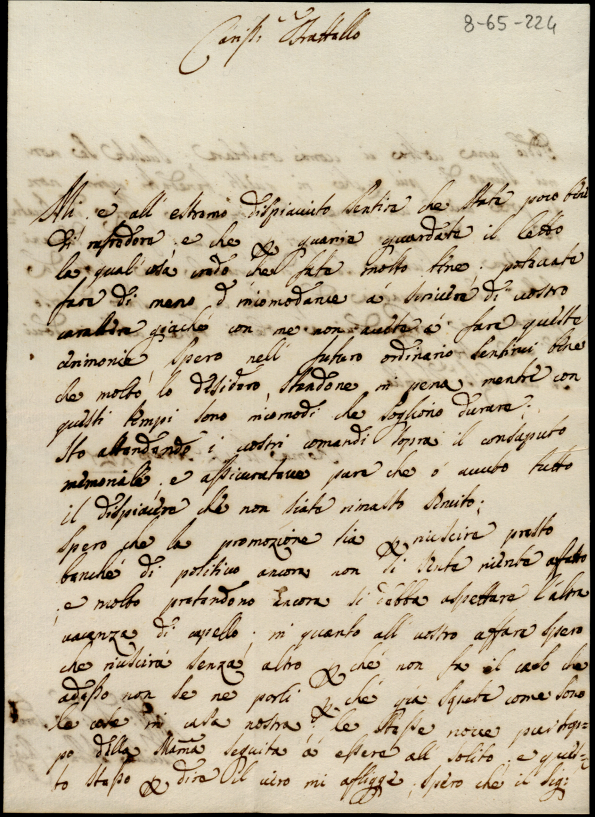 8-65-224
Cariss. Frattello
Mi é all' estremo dispiaciuto sentire che state poco bene
di rafredore e che per guarir guardate il letto
la qual cosa credo che fate molto bene; potevate
fare di meno d' incomodarve á scrivere di vostro
carattere giaché con me non avete á fare queste
cirimonie, spero nell' futuro ordinario sentirvi bene
che molto lo desidero, standone in pena mentre con
questi tempi sono incomodi che sogliono durare;
Sto attendendo i vostri comandi sopra il consaputo
memoriale, e assicurateve pure che o avuto tutto
il dispiacere che non siate rimasto servito;
spero che la promozione sia per riuscire presto
benché di politivo ancora non si senta niente affatto
e molto pretendono ancora si debba aspettare l'altra
vacanza di capello; in quanto all' vostro affare spero
che riuscirá senza altro per ché non fa il caso che
adesso non se ne parli per ché qua
le cose in casa nostra; le stesse nove
po della Mamá seguita á essere all' solito e ques=
to stesso per dire il vero mi afflgge; spero ché il Sig: